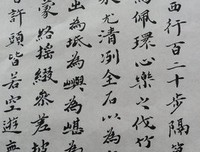 西行百二十步隔篁
鳴佩環心樂之伐竹
水尤清洌全石以為
出為坻為嶼為嵁為
蒙絡搖綴參差披
許頭皆若空遊無